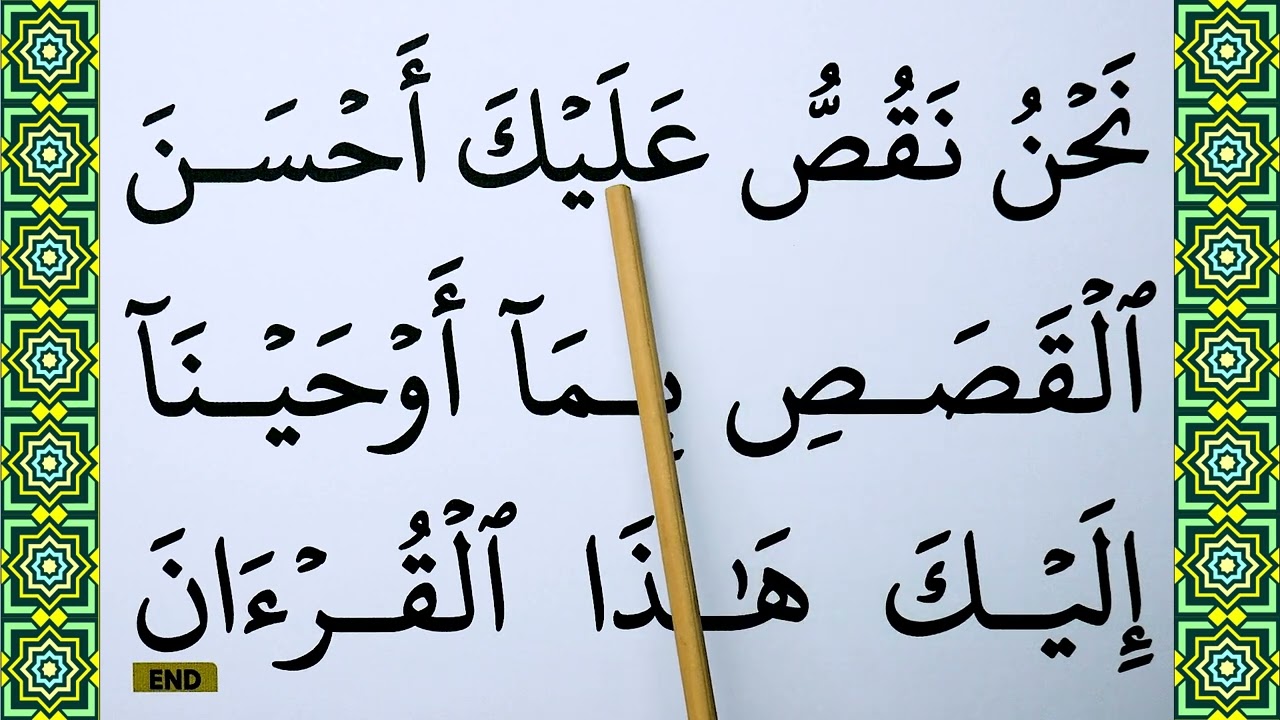 نَحۡنُ نَقُصُّ عَلَيۡكَ أَحۡسَنَ
ٱلۡقَصَصِ بِمَآ أَوۡحَيۡنَآ
إِلَيۡكَ هَٰذَا ٱلۡقُرۡءَانَ
END